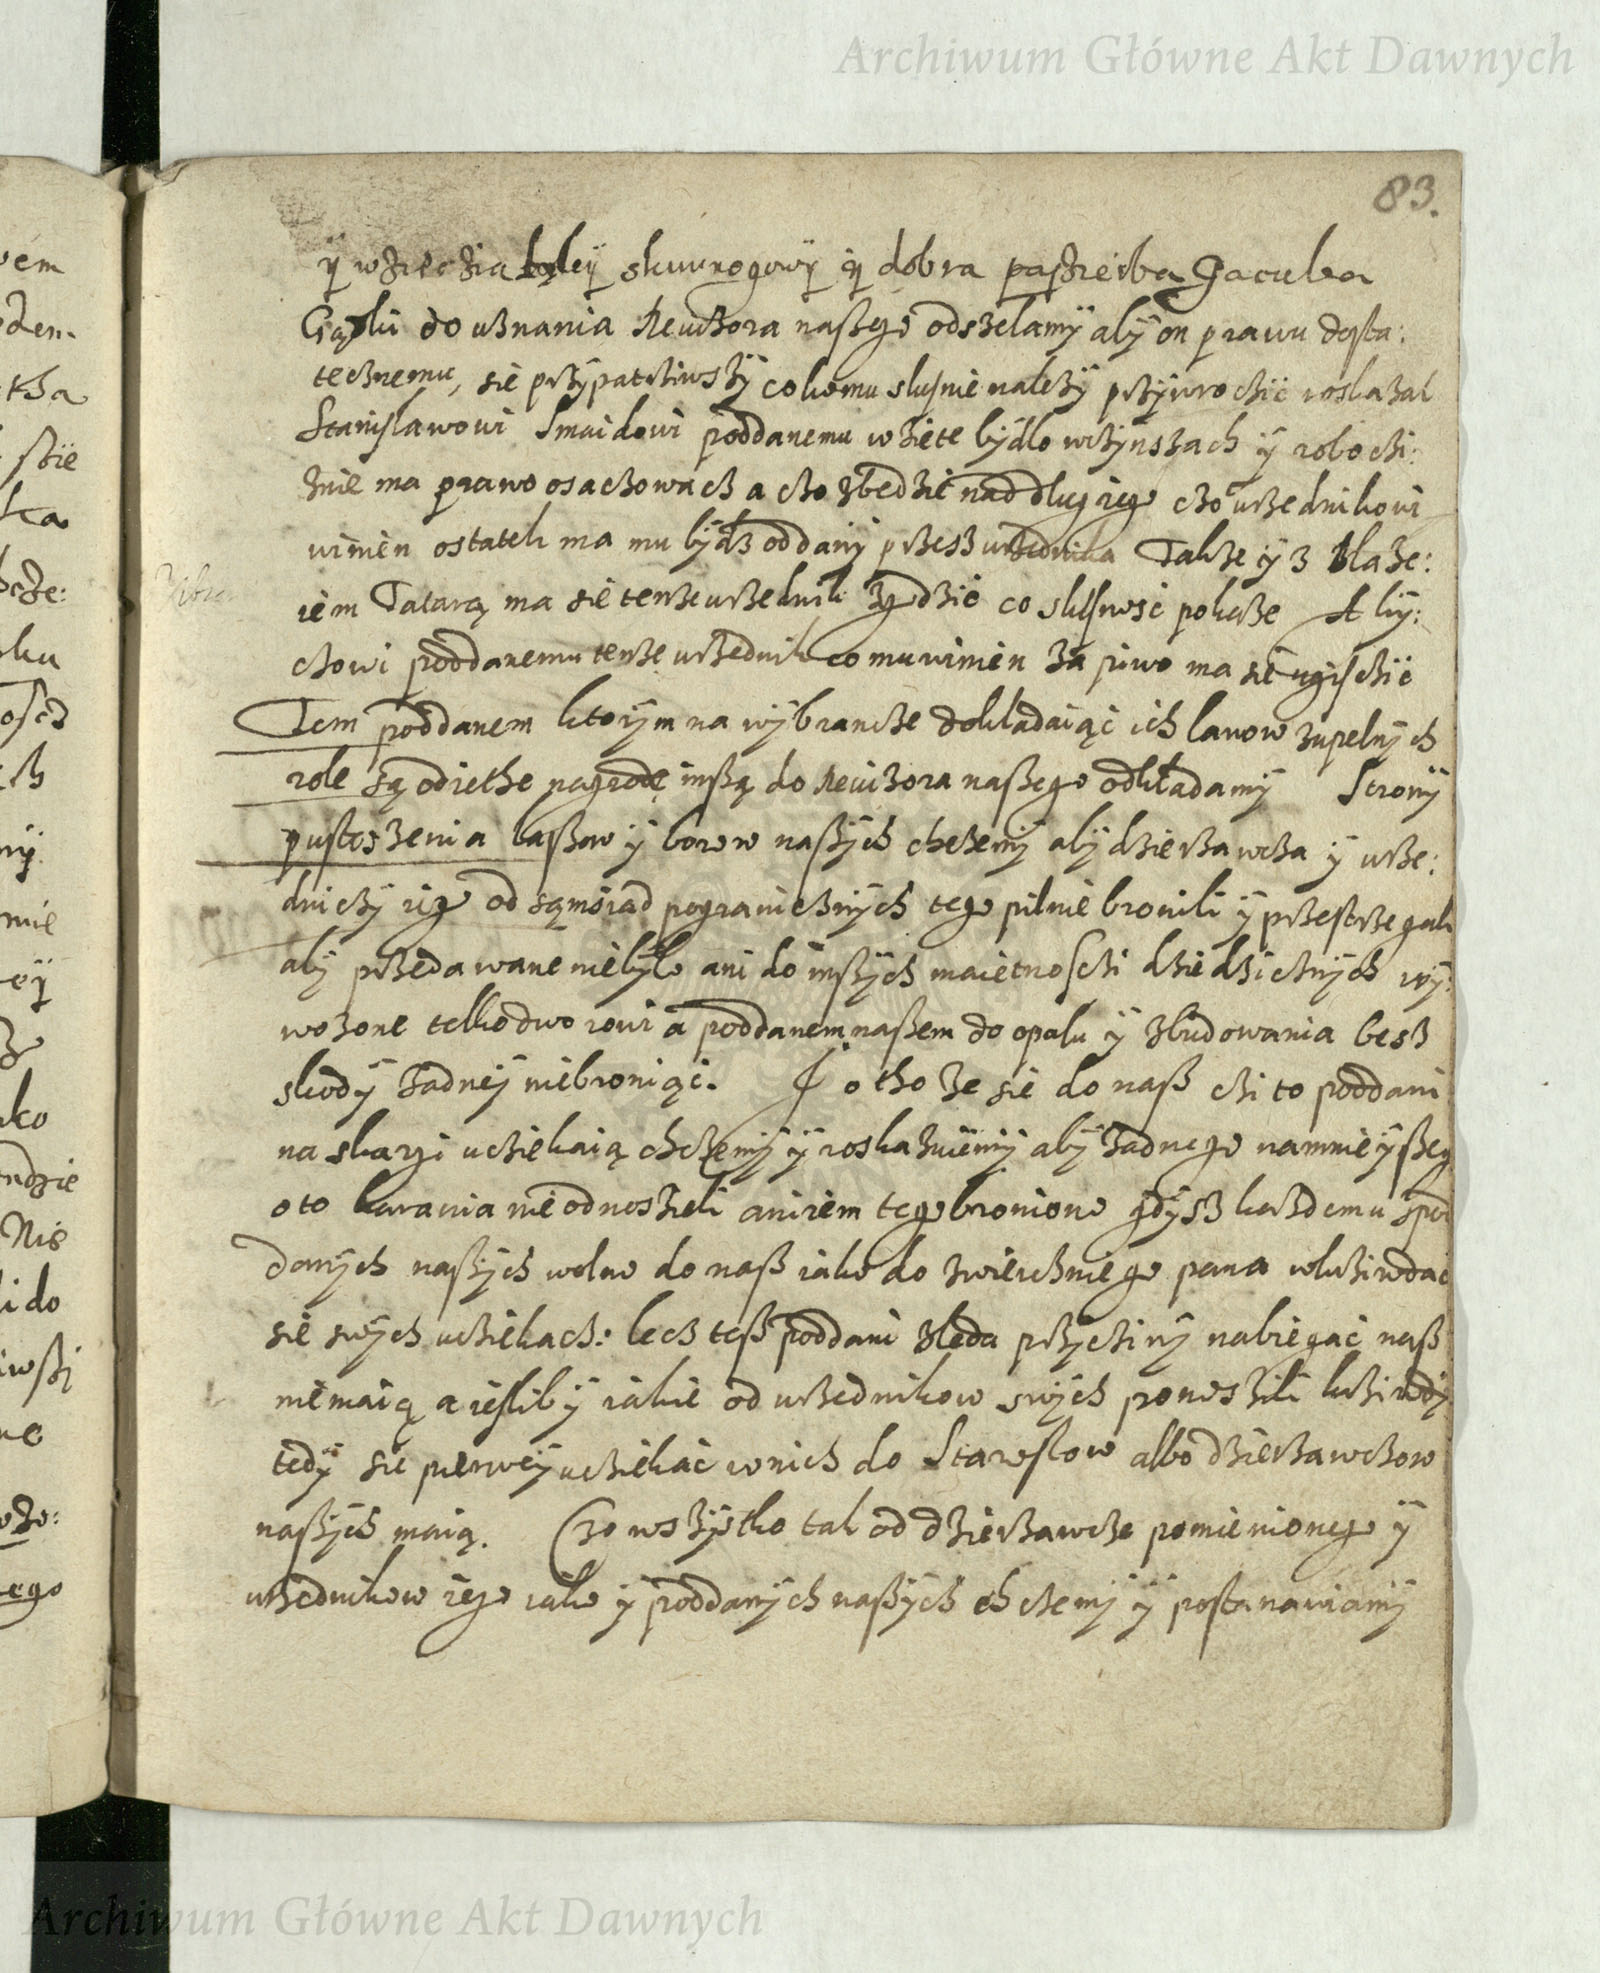 Archiwum Główne Akt Dawnych
83.
ÿ wzięczia łąkÿ skuurogowÿ ÿ dobra paſtierba Jacuba
do uznania Rewizora naßego odszelamÿ abÿ on prawu dosta:
tecznemu, sie przÿpatrziwszÿ co komu slusnie nalezÿ przÿwroczic roskazal
Stanislawowi Smaidowi poddanemu wziete bÿdlo wczÿnszach ÿ roboczi:
znie ma prawo osaczowacz a czo zbedzie nad dlug iego czo urzednikowi
winien ostatek ma mu bÿdz oddanÿ przesz urzednika Takze ÿ z Blaze:
iem Tatarą ma sie tenze urzednik zgodzic co slusnosc pokaze
czowi poddanemu tenze urzednik co mu winien za piwo ma sie ugisczic
Tem poddanem ktorÿm na wÿbrancze dokładaiąc ich lanow zupelnÿch
role są odiethe nagrodę inßą do Rewizora naßego odkładamÿ Stronÿ
pustoszenia laßow ÿ borow naßÿch chczemÿ abÿ dzierzawcza ÿ urze:
dniczÿ iego od sąmsiad pogranicznÿch tego pilnie bronili ÿ przestrzegali
abÿ przedawane niebÿlo ani do inßÿch maietnosczi dziedzicznÿch wÿ:
wozone telko dworowi a poddanem naßem do opalu ÿ zbudowania besz
skodÿ zadnej niebroniąc. I o tho ze sie do naß czi to poddani
na skargi uciekaią chczemÿ ÿ roskazuiemÿ abÿ zadnego namnieÿßeg
oto karania nie odnoszieli ani iem tego broniono gdÿsz kazdemu spod
danÿch naßÿch wolno do naß iako do zwierzchniego pana wkrziwdac
sie swÿch ucziekacz: lecz teß poddani zleda przÿczinÿ nabiegac naß
niemaią a iesliby iakie od urzednikow swÿch ponoszili krziwdÿ
tedÿ sie pierweÿ uciekac wnich do Starostow albo dzierzawczow
naßÿch maią. Czo wszÿstko tak od dzierzawcze pomienionego ÿ
urzednikow iego iako ÿ poddanÿch naßÿch chczemÿ ÿ postanawiamÿ
Archiwum Główne Akt Dawnych